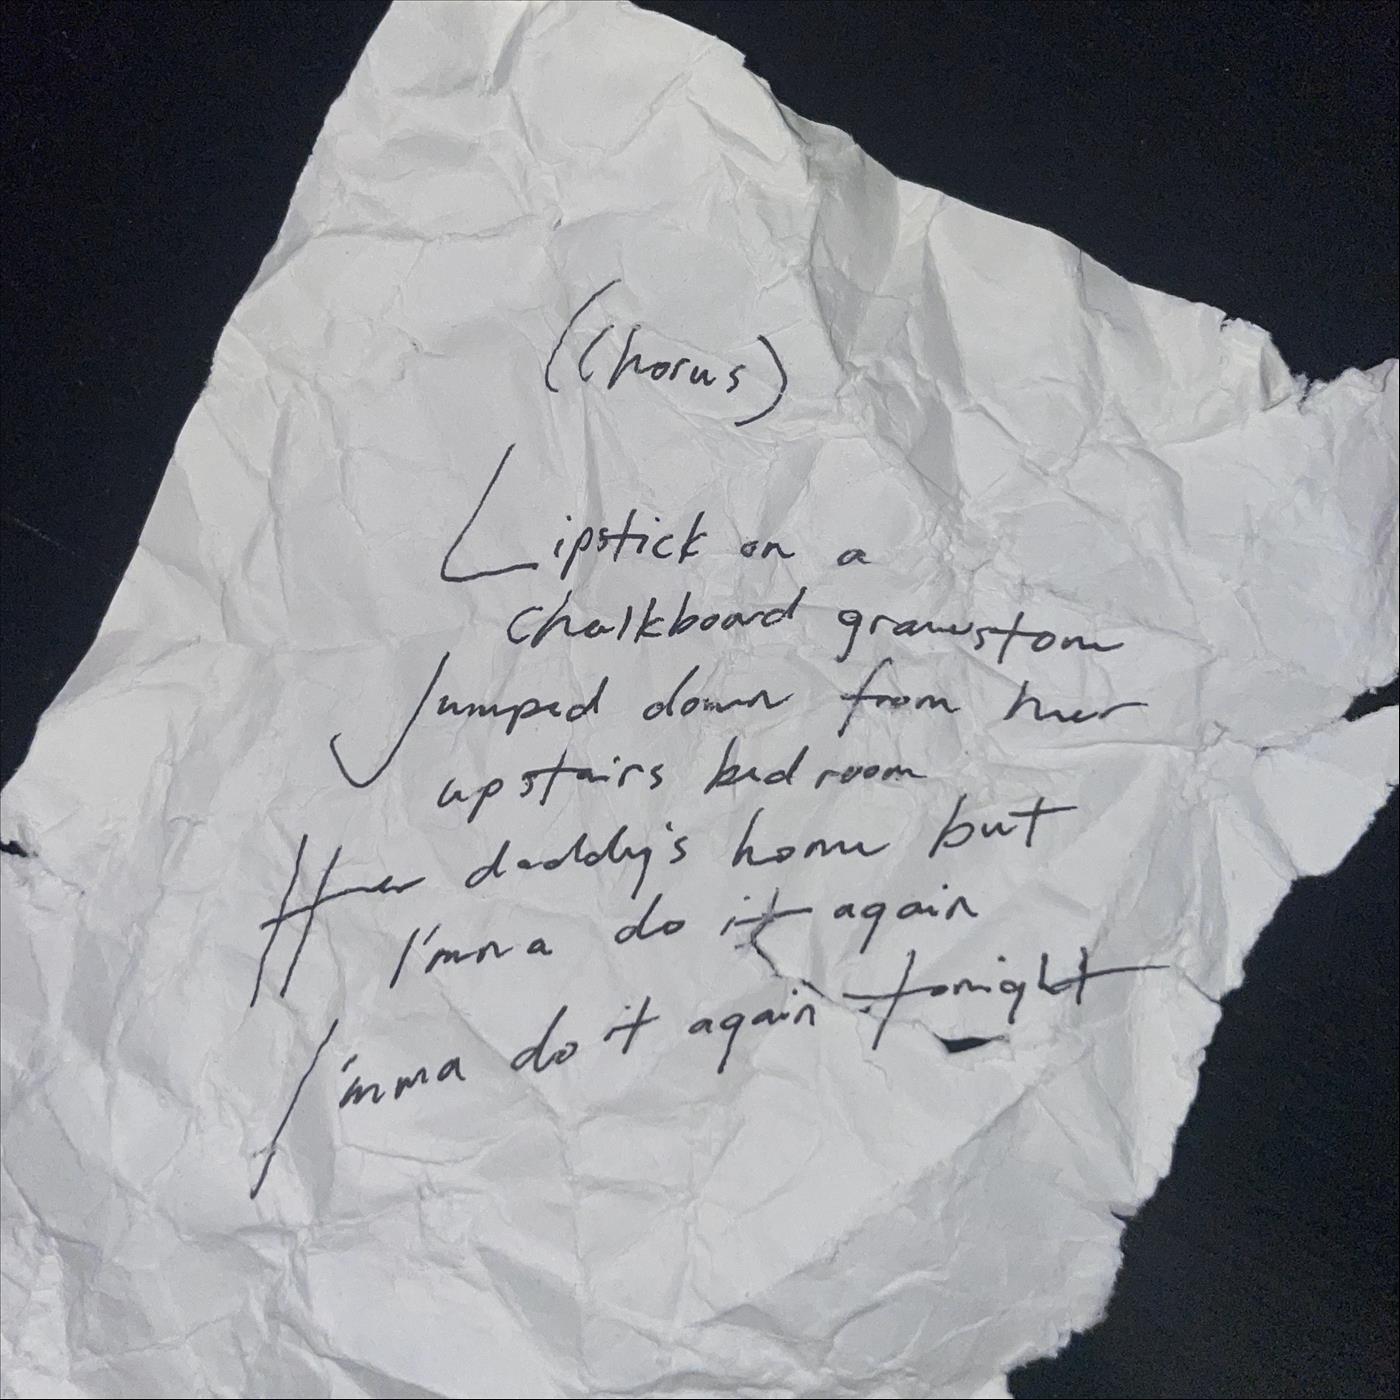 (Chorus)
Lipstick on a
chalkboard gravestone
Jumped down from her
upstairs bedroom
Her daddy's home but
I'mma do it again
I'mma do it again tonight